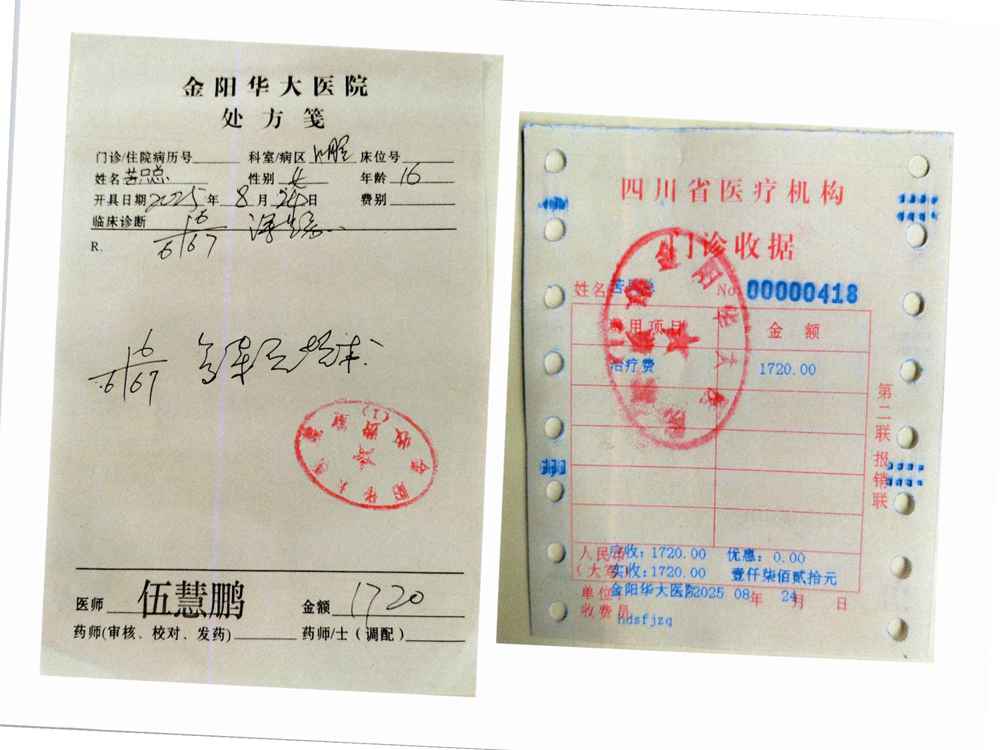 金阳华大医院
处方笺
门诊/住院病历号 科室/病区 口腔 床位号
姓名 性别 女 年龄 16
开具日期 2025 年 8 月 24 日 费别
临床诊断
6
6 67
R.
6
6 67
金阳华大医院
收费专用章
(1)
医师 伍慧鹏 金额 1720
药师(审核、校对、发药) 药师/士(调配)
四川省医疗机构
门诊收据
姓名 No: 00000418
费用项目 金额
治疗费 1720.00
第二联 报销联
人民币 应收: 1720.00 优惠: 0.00
(大写) 实收: 1720.00 壹仟柒佰贰拾元
单位 金阳华大医院 2025 年 08 月 24 日
收费员 hdsfjzq